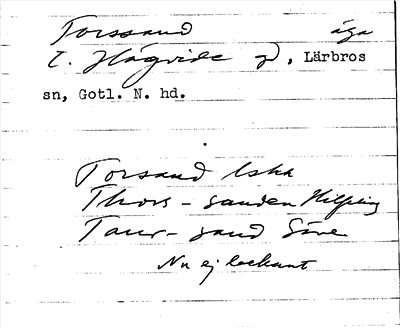 Torssand äga
t. Hägvide gd, Lärbros
sn, Gotl. N. hd.
Torsand Uska
Thors-sanden Hilfeling
Taur-sand Säve
Nu ej bekant